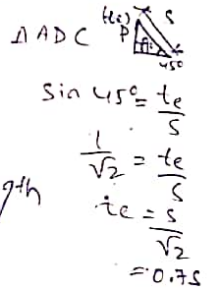 Δ ADC
(te) S
P
45°
Sin 45° = te/S
1/√2 = te/S
te = S/√2
= 0.7S